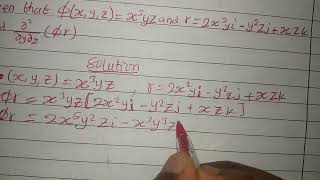 en that φ(x,y,z) = x³yz and r = 2x²yi - y²zj + xzk
d ∂²/∂y∂z (φr)
Solution
(x,y,z) = x³yz , r = 2x²yi - y²zj + xzk
φr = x³yz [2x²yi - y²zj + xzk]
φr = 2x⁵y²zi - x³y³z